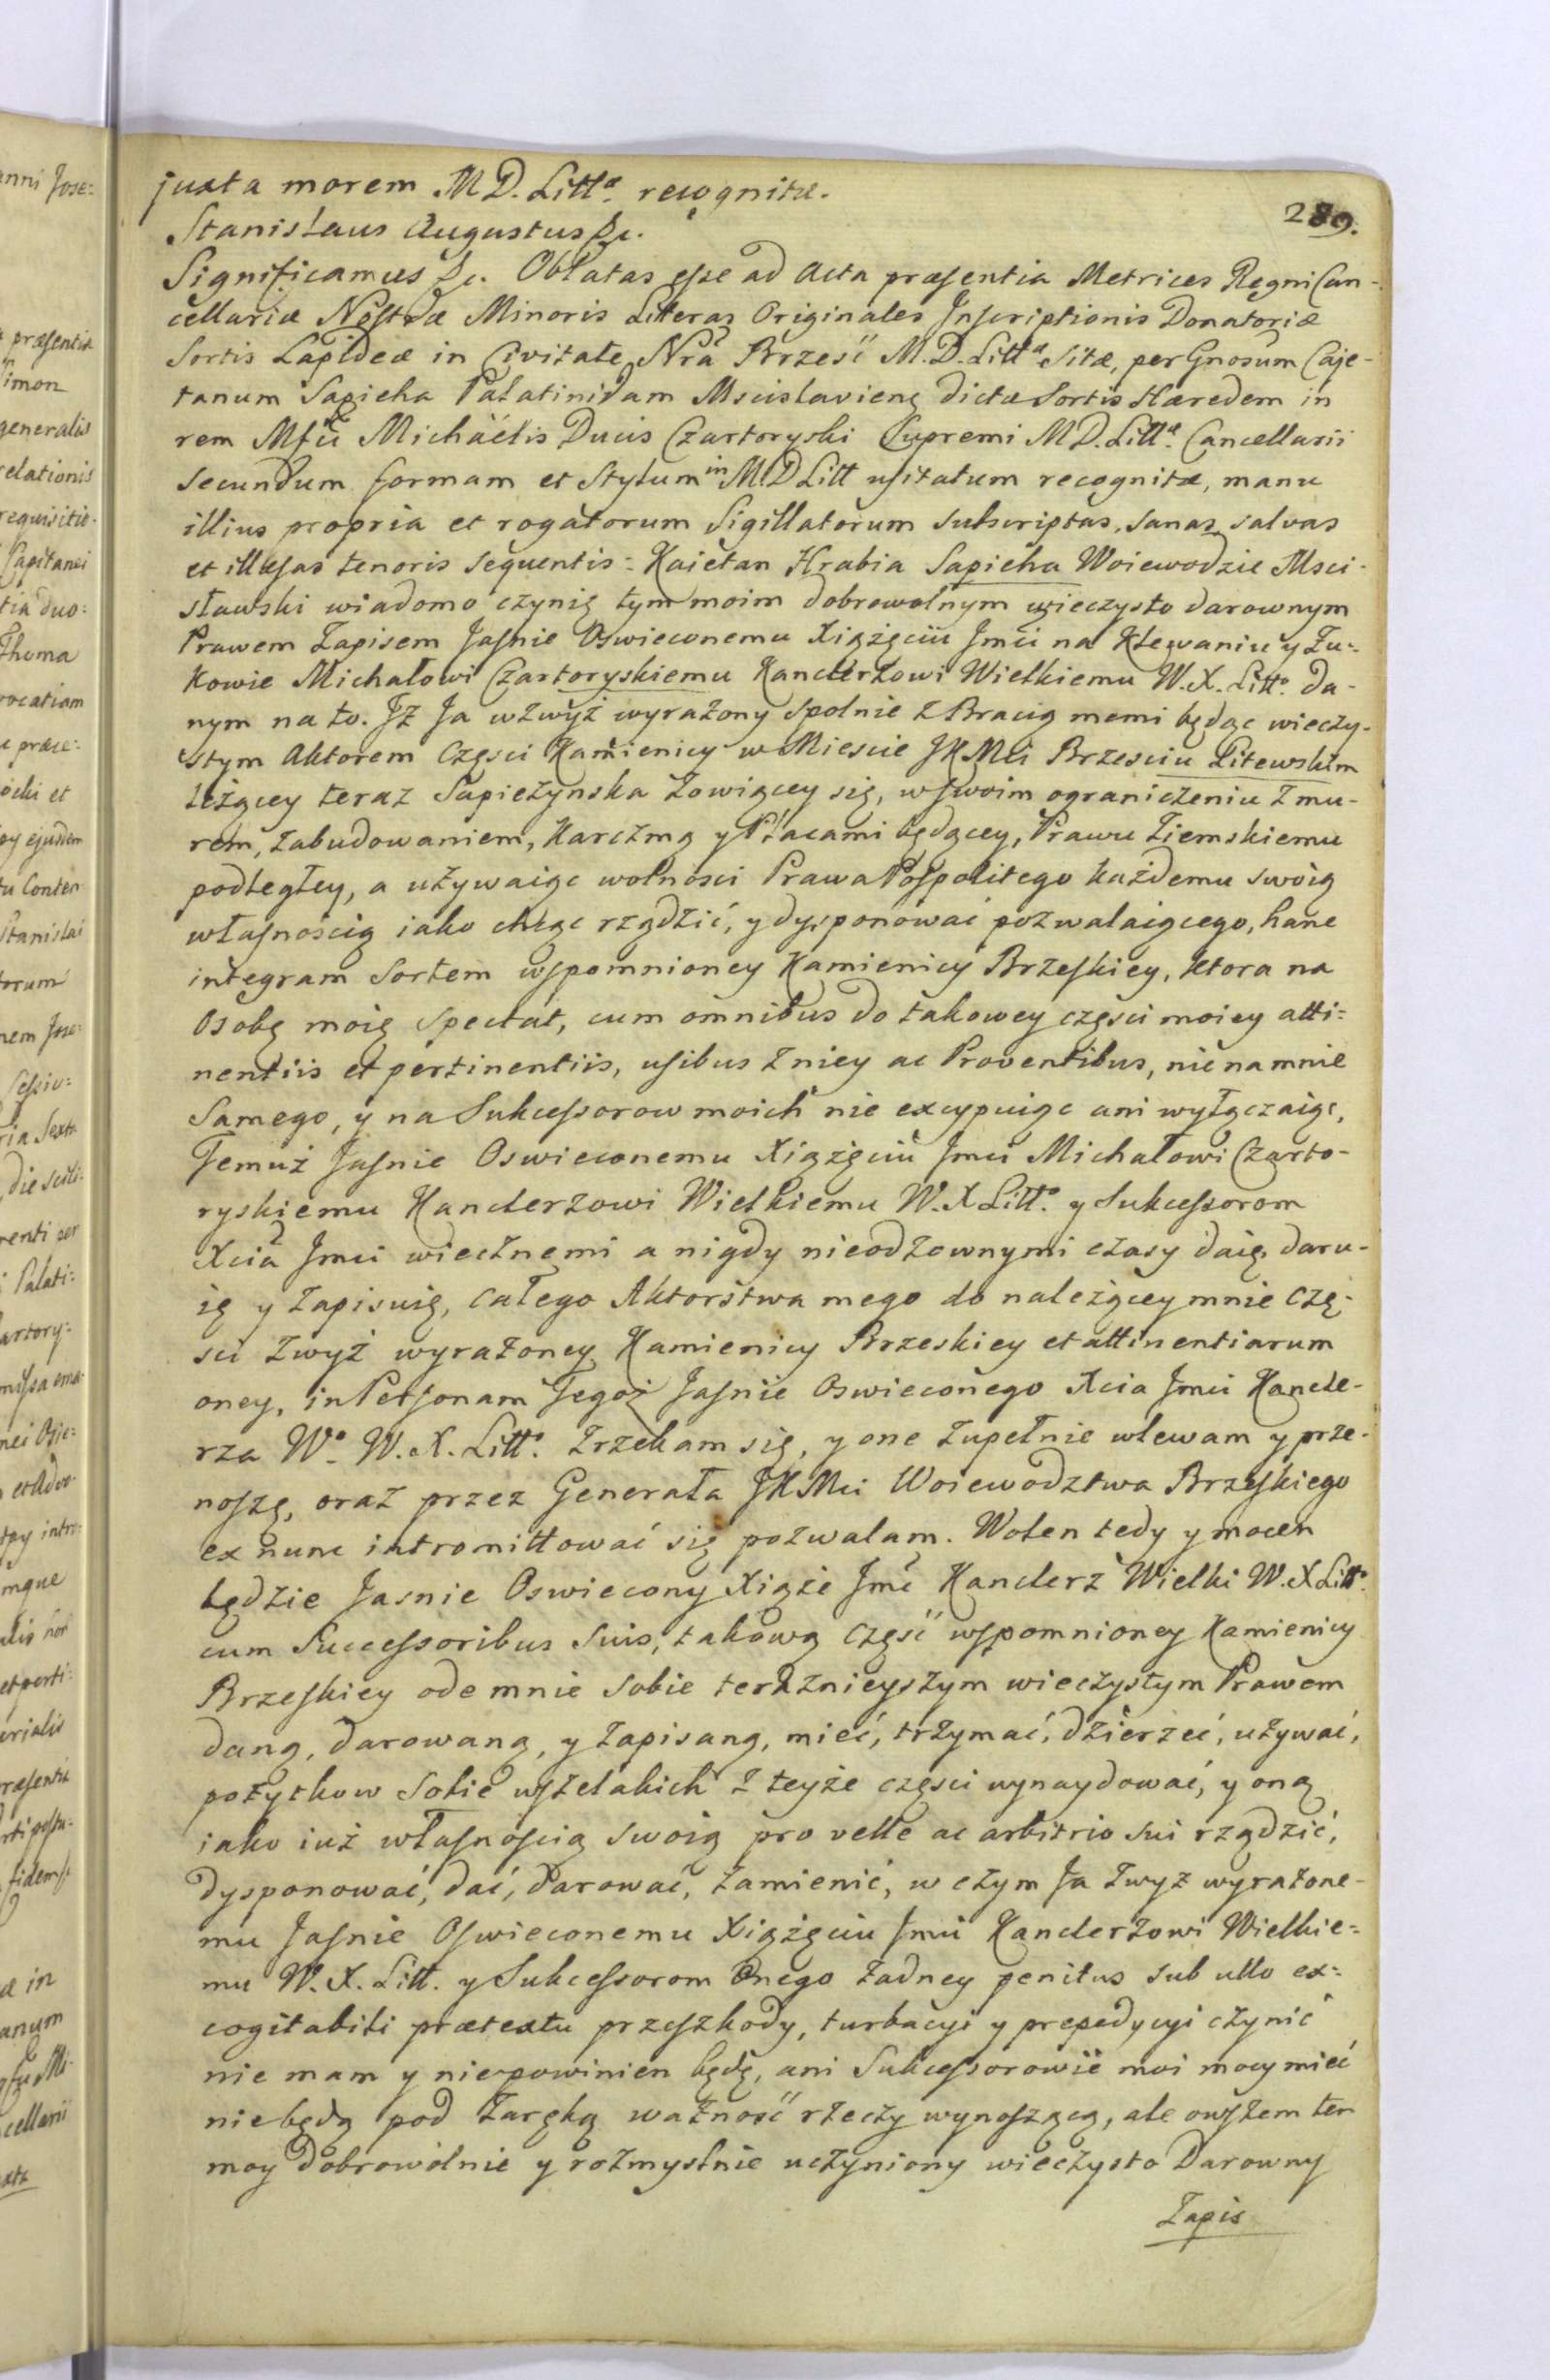 juxta morem M D. Littæ. recognitæ.
289.
Stanislaus Augustus &c.
Significamus &c. Oblatas esse ad Acta præsentia Metrices Regni Can-
cellariæ Nostræ Minoris Literas Originales Inscriptionis Donatoriæ
Sortis Lapideæ in Civitate Nrã Brzesć M. D. Littæ Sitæ, per Gnosum Caje-
tanum Sapieha Palatinidam Mscislavieñ dictæ Sortis Hæredem in
rem Mfci Michaelis Ducis Czartoryski Supremi M D. Littæ. Cancellarii
secundum formam et Stylum in M. D Litt usitatum recognitæ, manu
illius propria et rogatorum Sigillatorum subscriptas, sanas, salvas
et illæsas tenoris sequentis: Kaietan Hrabia Sapieha Woiewodzic Msci-
sławski wiadomo czynię tym moim dobrowolnym wieczysto darownym
Prawem Zapisem Jaśnie Oswieconemu Xiążęciu Jmci na Klewaniu y Żu-
kowie Michałowi Czartoryskiemu Kanclerzowi Wielkiemu W. X. Litto. da-
nym na to. Iż Ja wzwyż wyrażony spolnie z Bracią memi będąc wieczy-
stym Aktorem Częsci Kamienicy w Miescie JKMci Brzesciu Litewskim
leżącey teraz Sapieżynska zowiącey się, w swoim ograniczeniu z mu-
rem, zabudowaniem, Karczmą y Placami będącey, Prawu Ziemskiemu
podległey, a używaiąc wolnosci Prawa Pospolitego każdemu swoią
własnoscią iako chcąc rządzić, y dysponować pozwalaiącego, hanc
integram Sortem wspomnioney Kamienicy Brzeskiey, ktora na
Osobę moię spectat, cum omnibus do takowey częsci moiey atti-
nentiis et pertinentiis, usibus z niey ac Proventibus, nic na mnie
Samego, y na Sukcessorow moich nie excypuiąc ani wyłączaiąc,
Temuż Jasnie Oswieconemu Xiążęciu Jmci Michałowi Czarto-
ryskiemu Kanclerzowi Wielkiemu W. X Litto. y Sukcessorom
Xcia Jmci wiecznemi a nigdy nieodzownymi czasy daię, daru-
ię y zapisuię, całego Aktorstwa mego do należącey mnie Czę-
sci zwyż wyrażoney Kamienicy Brzeskiey et attinentiarum
oney, in Personam Tegoż Jasnie Oswieconego Xcia Jmci Kancle-
rza Wo. W. X. Litto. zrzekam się, y one zupełnie wlewam y prze-
noszę, oraz przez Generała JKMci Woiewodztwa Brzeskiego
ex nunc intromittować się pozwalam. Wolen tedy y mocen
będzie Jasnie Oswiecony Xiąże Jmć Kanclerz Wielki W. X Litto.
cum Successoribus suis, takową częsć wspomnioney Kamienicy
Brzeskiey ode mnie sobie teraznieyszym wieczystym Prawem
daną, darowaną, y zapisaną, mieć, trzymać, dzierzeć, używać,
pożytkow sobie wszelakich z teyże częsci wynaydować, y oną
iako iuż własnoscią swoią pro velle ac arbitrio sui rządzić,
dysponować, dać, darować, zamienić, w czym Ja zwyż wyrażone-
mu Jasnie Oswieconemu Xiążęciu Jmci Kanclerzowi Wielkie-
mu W. X. Litt. y Sukcessorom Onego żadney penitus sub ullo ex-
cogitabili prætextu przeszkody, turbacyi y prepedycyi czynić
nie mam y niepowinien będę, ani Sukcessorowie moi mocy mieć
niebędą pod zaręką ważność rzeczy wynoszącą, ale owszem ten
moy dobrowolnie y rozmyslnie uczyniony wieczysto Darowny
Zapis